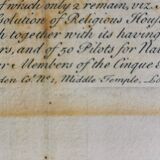 of which only 2 remain, viz. S
solution of Religious Hous
h together with its having
rs, and of 50 Pilots for Nav
r Members of the Cinque
don Col. Nº 1, Middle Temple, Lo